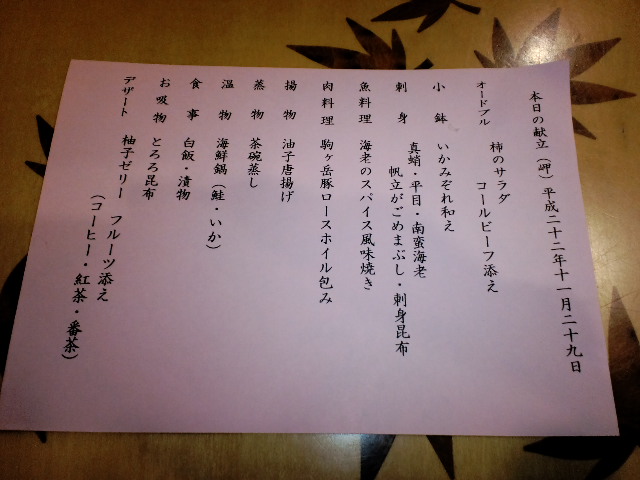 本日の献立(岬)平成二十二年十一月二十九日
オードブル 柿のサラダ
コールビーフ添え
小鉢 いかみぞれ和え
刺身 真蛸・平目・南蛮海老
帆立がごめまぶし・刺身昆布
魚料理 海老のスパイス風味焼き
肉料理 駒ヶ岳豚ロースホイル包み
揚物 油子唐揚げ
蒸物 茶碗蒸し
温物 海鮮鍋(鮭・いか)
食事 白飯・漬物
お吸物 とろろ昆布
デザート 柚子ゼリー フルーツ添え
(コーヒー・紅茶・番茶)